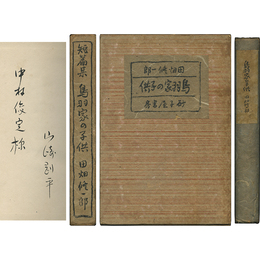 中村俊定様
山崎剛平
短篇集 鳥羽家の子供 田畑修一郎
田畑修一郎
鳥羽家の子供
砂子屋書房